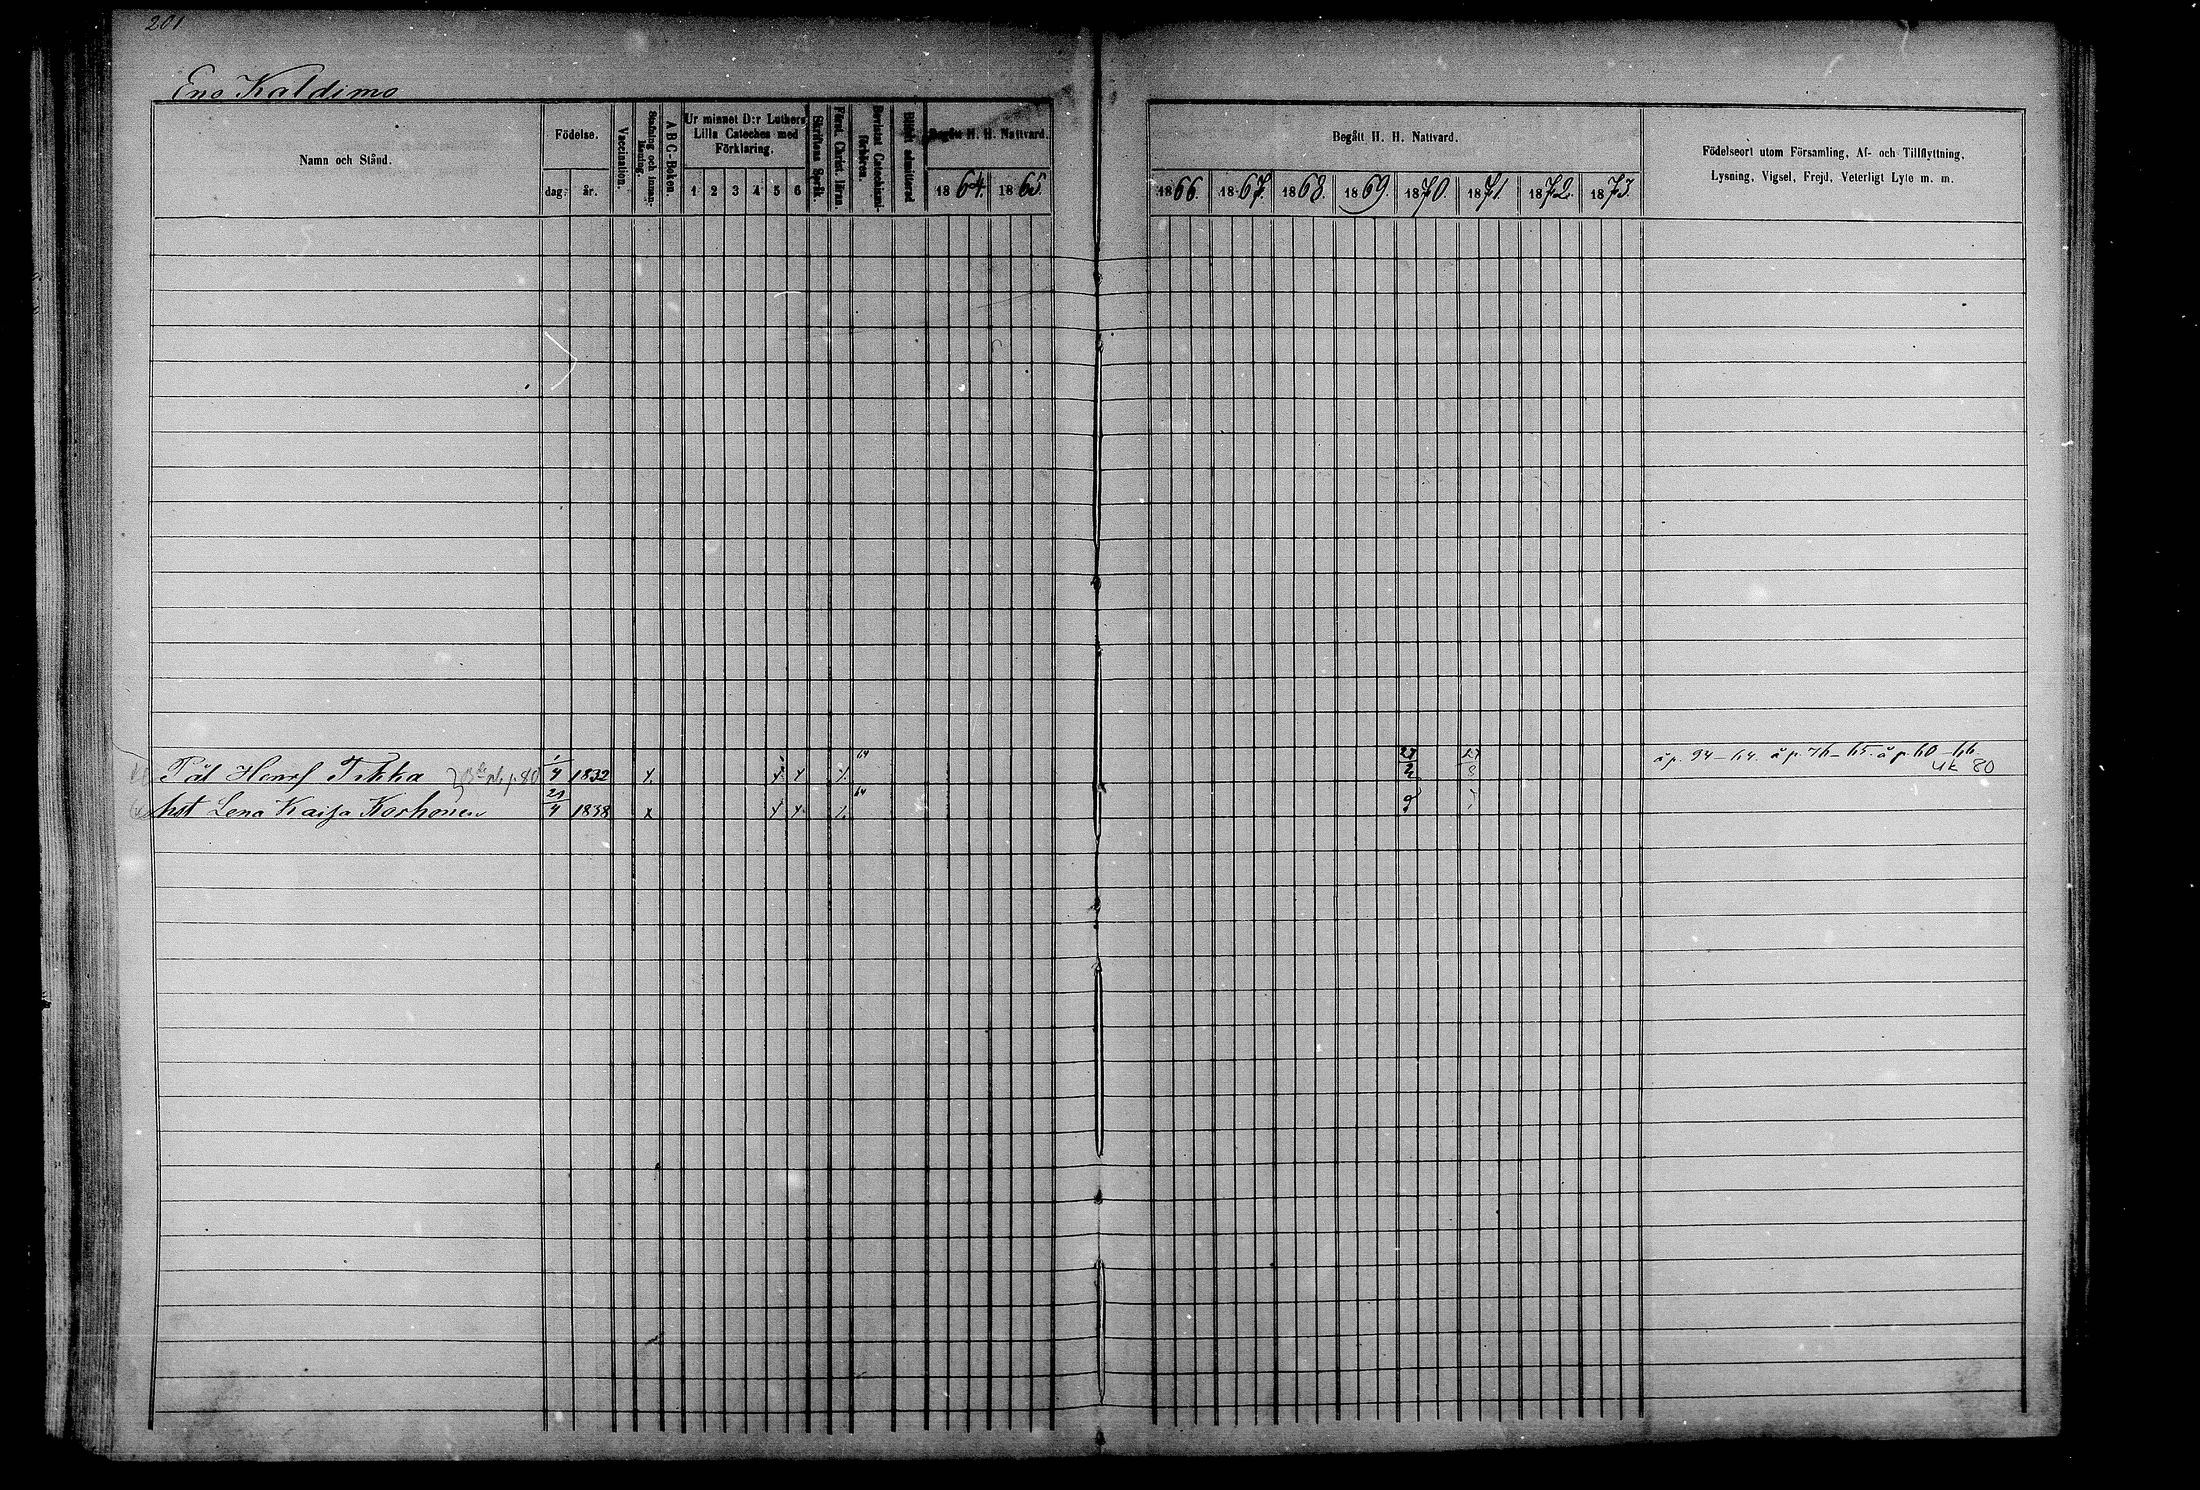 201
Eno Kaldimo
Namn och Stånd.
Födelse.
dag. år.
Vaccination.
Stafning och Innan-läsning.
A B C-Boken.
Ur minnet D:r Luthers Lilla Cateches med Förklaring.
1 2 3 4 5 6
Skriftens Språk.
Först. Christ. lärn.
Bevistat Catechismi-förhören.
Blifvit admitterad
Begått H. H. Nattvard.
1864. 1865.
Begått H. H. Nattvard.
1866. 1867. 1868. 1869. 1870. 1871. 1872. 1873.
Födelseort utom Församling, Af- och Tillflyttning,
Lysning, Vigsel, Frejd, Veterligt Lyte m. m.
Päl Henr Tikka p. 80 1/4 1832 x x x 64 27/2 27/8 å p. 94–64. å p. 76–65. å p. 60–66
UK 80
hst Lena Kaisa Korhonen 29/4 1838 x x x 64